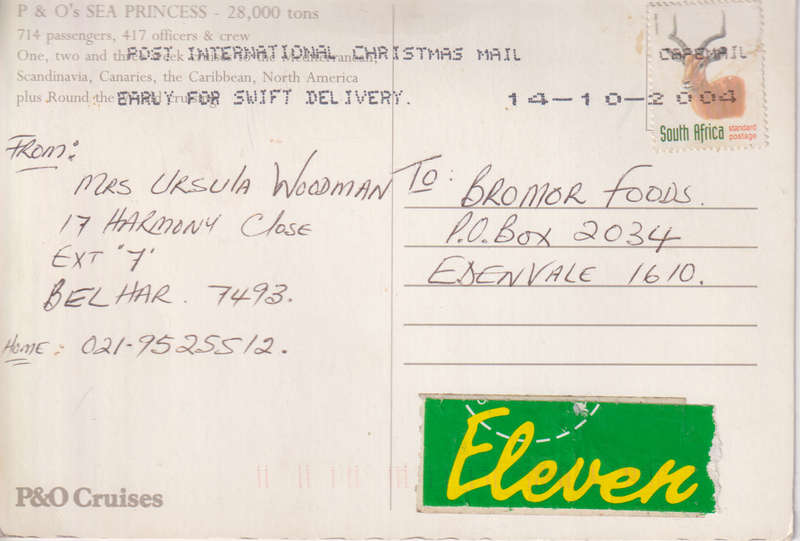 P & O's SEA PRINCESS - 28,000 tons
714 passengers, 417 officers & crew
One, two and three week cruises to the Mediterranean,
Scandinavia, Canaries, the Caribbean, North America
plus Round the World cruising.
POST INTERNATIONAL CHRISTMAS MAIL
EARLY FOR SWIFT DELIVERY.
CAPEMAIL
14-10-2004
South Africa standard postage
FROM:
MRS URSULA WOODMAN
17 HARMONY Close
EXT '7'
BELHAR. 7493.
HOME: 021-9525512.
TO: BROMOR FOODS.
P.O. Box 2034
EDENVALE 1610.
Eleven
P&O Cruises